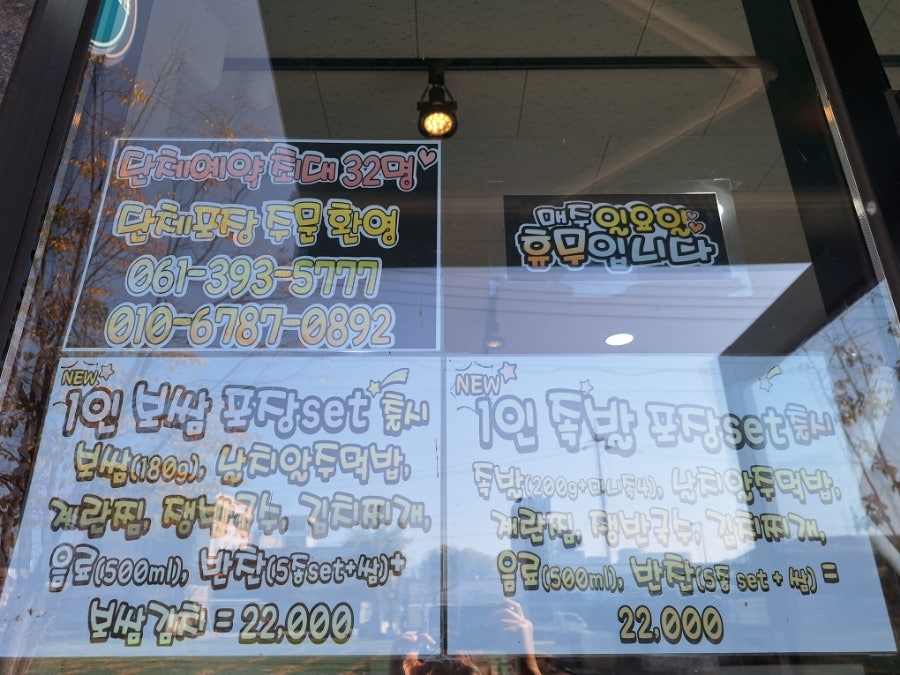 단체예약 최대 32명
단체포장 주문 환영
061-393-5777
010-6787-0892
매주 일요일
휴무입니다
NEW
1인 보쌈 포장set 출시
보쌈(180g), 날치알주먹밥,
계란찜, 쟁반국수, 김치찌개,
음료(500ml), 반찬(5종set+쌈)+
보쌈김치 = 22,000
NEW
1인 족발 포장set 출시
족발(200g+미니족4), 날치알주먹밥,
계란찜, 쟁반국수, 김치찌개,
음료(500ml), 반찬(5종 set + 쌈) =
22,000